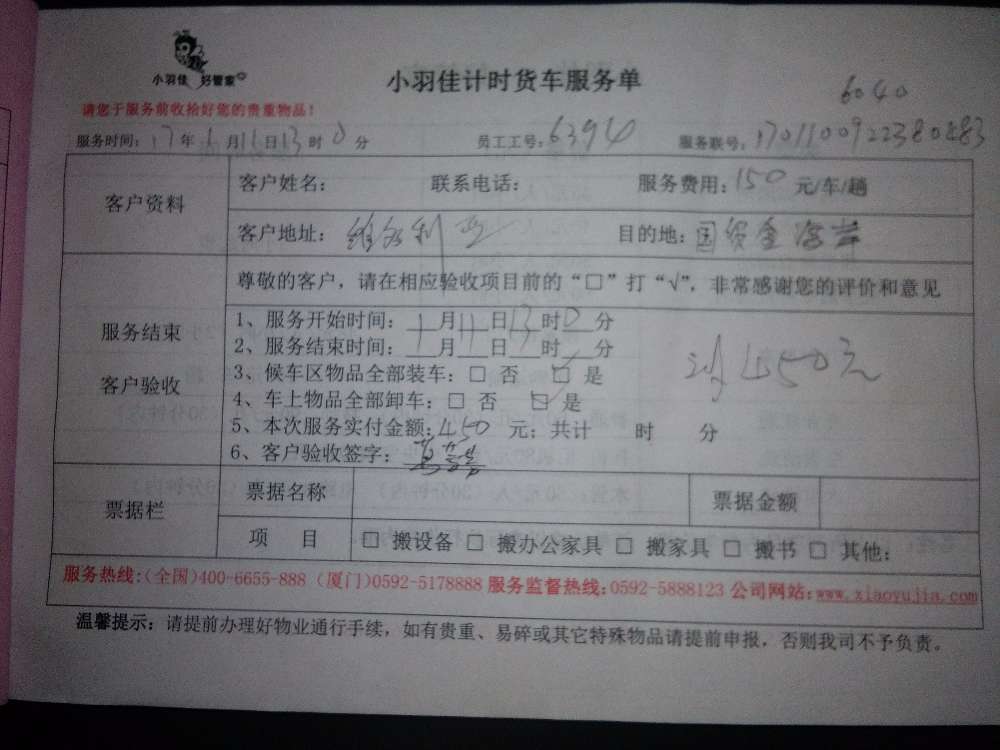 小羽佳 好管家
小羽佳计时货车服务单
6040
请您于服务前收拾好您的贵重物品！
服务时间：17年1月11日13时0分 员工工号：6394 服务联号：1701100922380883
客户资料
客户姓名： 联系电话： 服务费用：150元/车/趟
客户地址：维多利亚 目的地：国贸金海岸
服务结束
客户验收
尊敬的客户，请在相应验收项目前的“□”打“√”，非常感谢您的评价和意见
1、服务开始时间：1月11日13时0分
2、服务结束时间：__月__日__时__分
3、候车区物品全部装车：□ 否 ☑ 是
4、车上物品全部卸车：□ 否 ☑ 是
5、本次服务实付金额：450 元；共计 时 分
6、客户验收签字：
450元
票据栏
票据名称 票据金额
项 目 □ 搬设备 □ 搬办公家具 □ 搬家具 □ 搬书 □ 其他：
服务热线：(全国)400-6655-888 (厦门)0592-5178888 服务监督热线：0592-5888123 公司网站：www.xiaoyujia.com
温馨提示：请提前办理好物业通行手续，如有贵重、易碎或其它特殊物品请提前申报，否则我司不予负责。